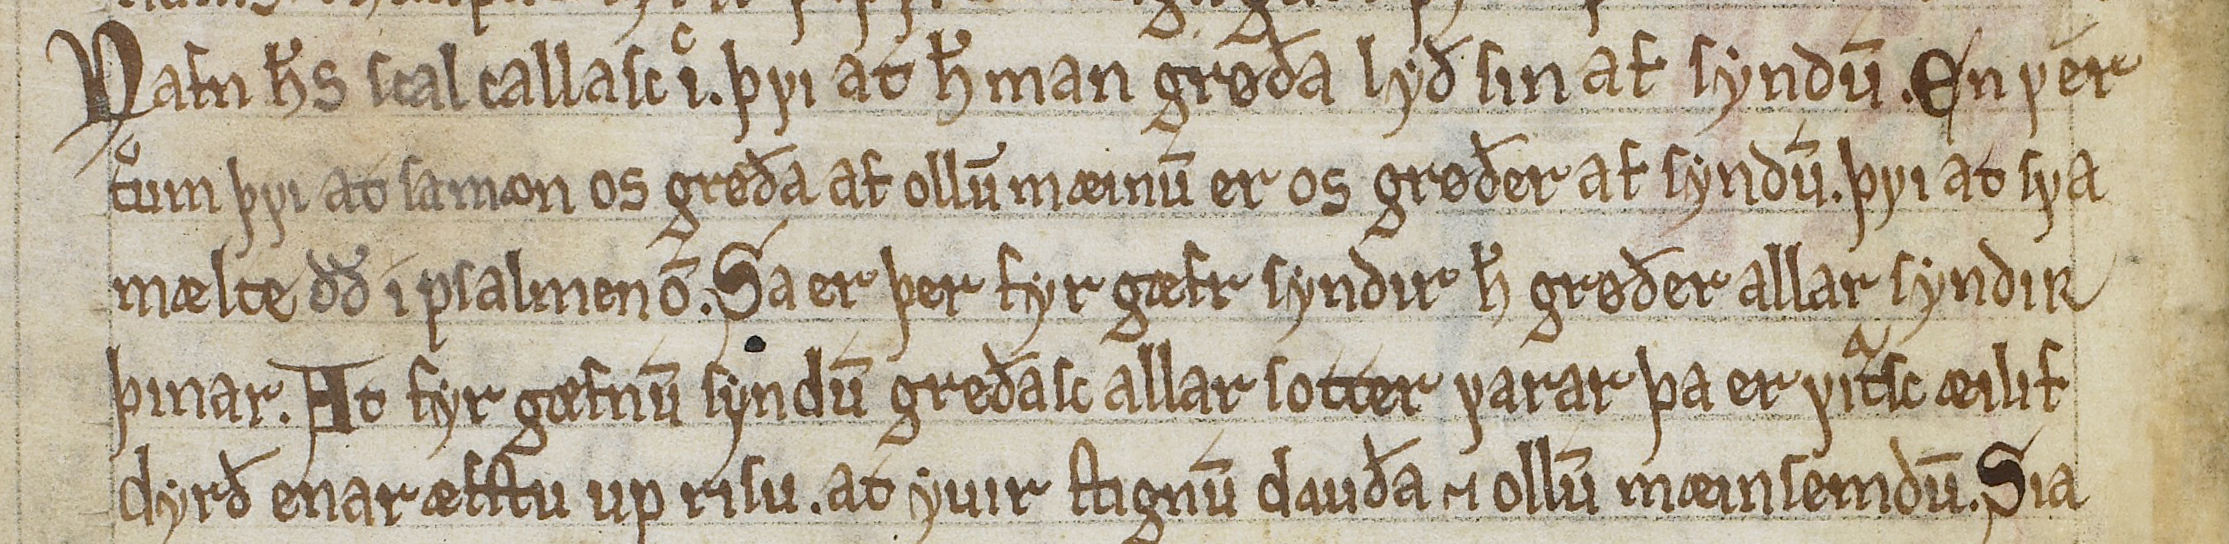 Nafn h̅s scal callasc i͛. þꝩi at h̅ man grøða lyð sin af syndu̅. En ꝩér
tͮum þꝩi at sa mon os grøða af ollu̅ mæinu̅ er os grøðer af syndu̅. þꝩi at sꝩa
mælte dð i psalmeno̅. Sa er þer fyr gæfr syndir h̅ grøðer allar syndiʀ
þinar. At fyr gæfnu̅ syndu̅ greðasc allar sotter ꝩarar þa er ꝩitͣsc æilif
dyrð enar æfstu up risu. at yuir stignu̅ dauða ⁊ ollu̅ mæinsemdu̅. Sia